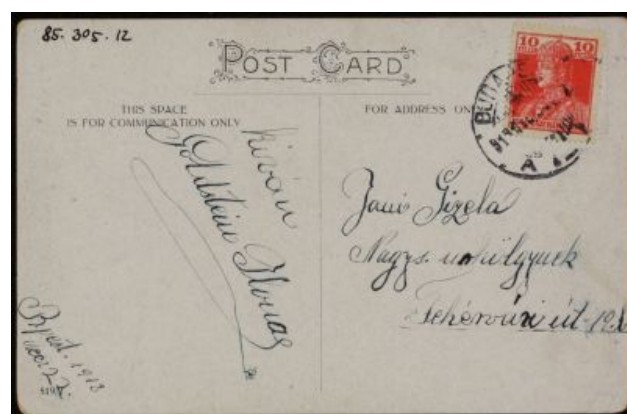 85. 305. 12
POST CARD
THIS SPACE
IS FOR COMMUNICATION ONLY
FOR ADDRESS ONLY
10 10
BUDAPEST
A
kíván
Goldstein Ilonas
Bpest. 1918
Gizela
Nagys. úrhölgynek
Fehérvári út